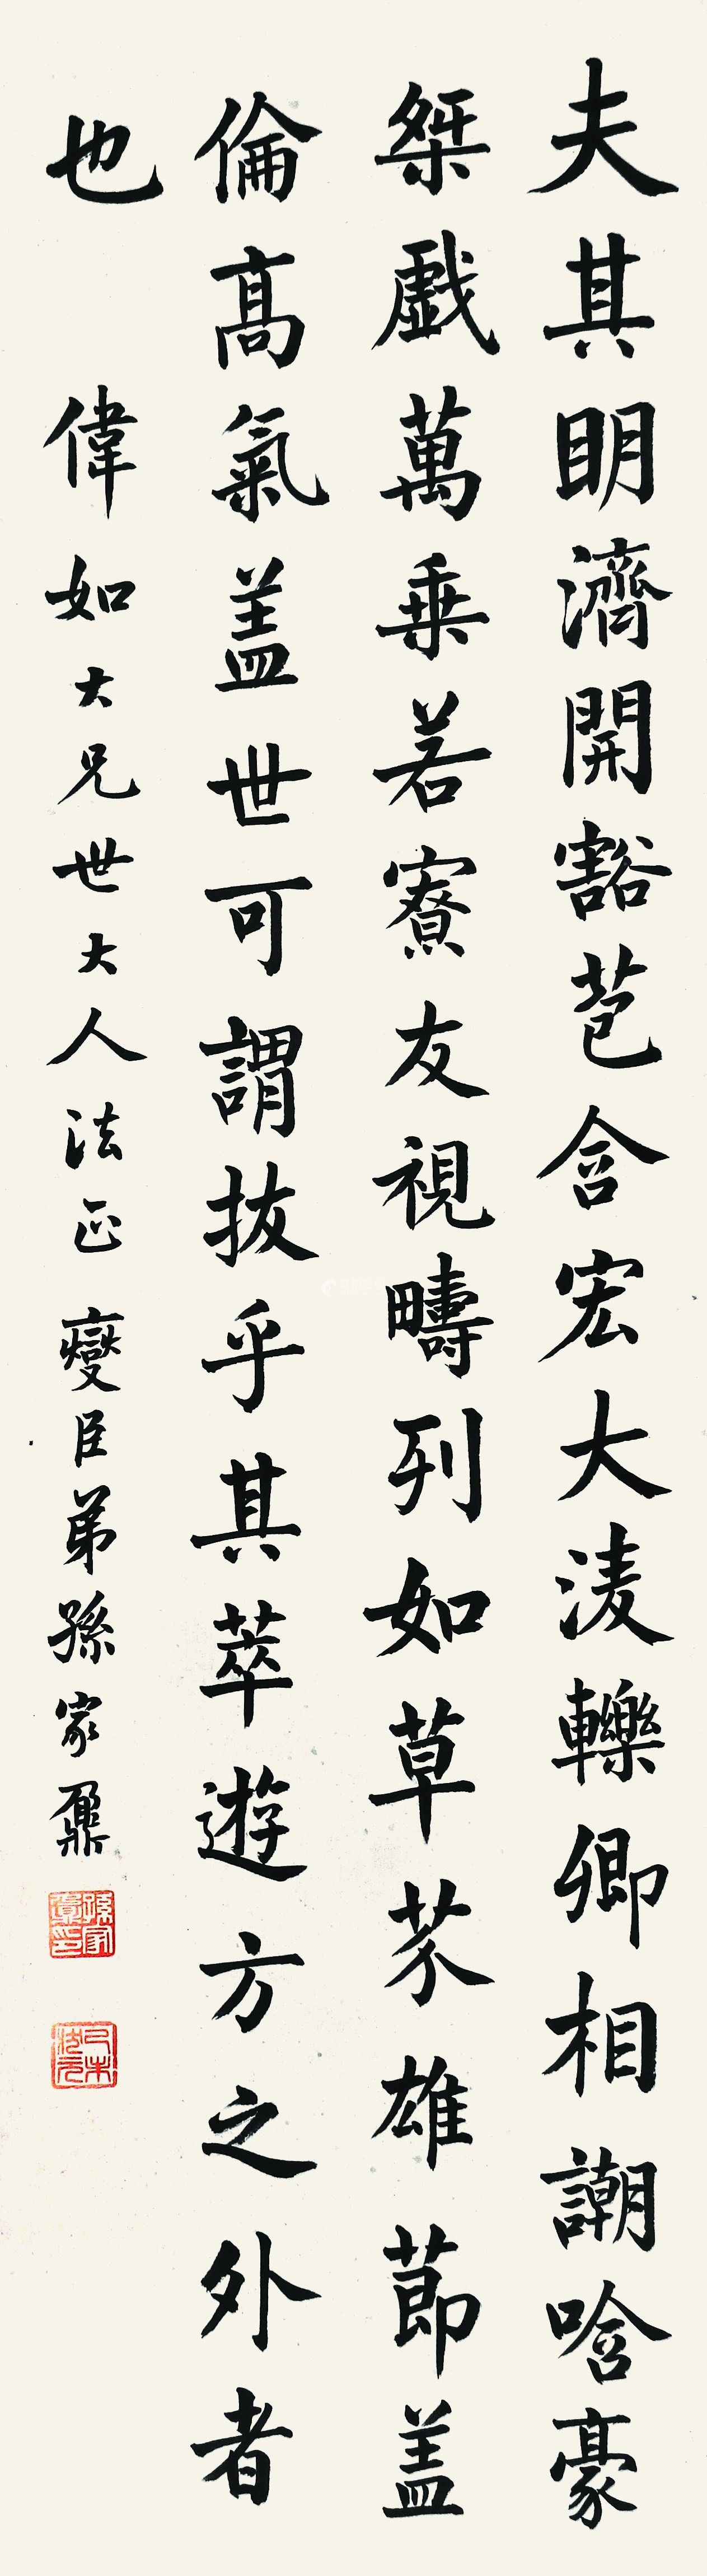 夫其明濟開豁苞含宏大淩轢卿相謿唅豪
桀戲萬乗若寮友視疇列如草芥雄節盖
倫高氣盖世可謂拔乎其萃遊方之外者
也 偉如大兄世大人法正 燮臣弟孫家鼐
孫家鼐印
己未狀元